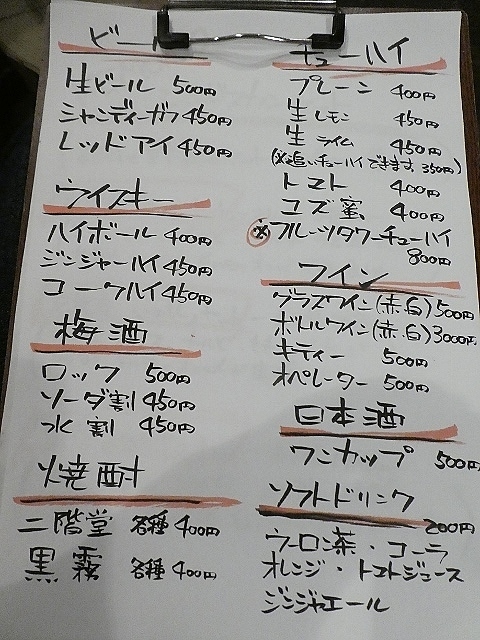 ビール
生ビール 500円
シャンディーガフ 450円
レッドアイ 450円
ウイスキー
ハイボール 400円
ジンジャーハイ 450円
コークハイ 450円
梅酒
ロック 500円
ソーダ割 450円
水割 450円
焼酎
二階堂 各種 400円
黒霧 各種 400円
チューハイ
プレーン 400円
生レモン 450円
生ライム 450円
(※追いチューハイできます。350円)
トマト 400円
ユズ蜜 400円
※フルーツタワーチューハイ
800円
ワイン
グラスワイン(赤、白) 500円
ボトルワイン(赤、白) 3000円
キティー 500円
オペレーター 500円
日本酒
ワンカップ 500円
ソフトドリンク
200円
ウーロン茶・コーラ
オレンジ・トマトジュース
ジンジャエール